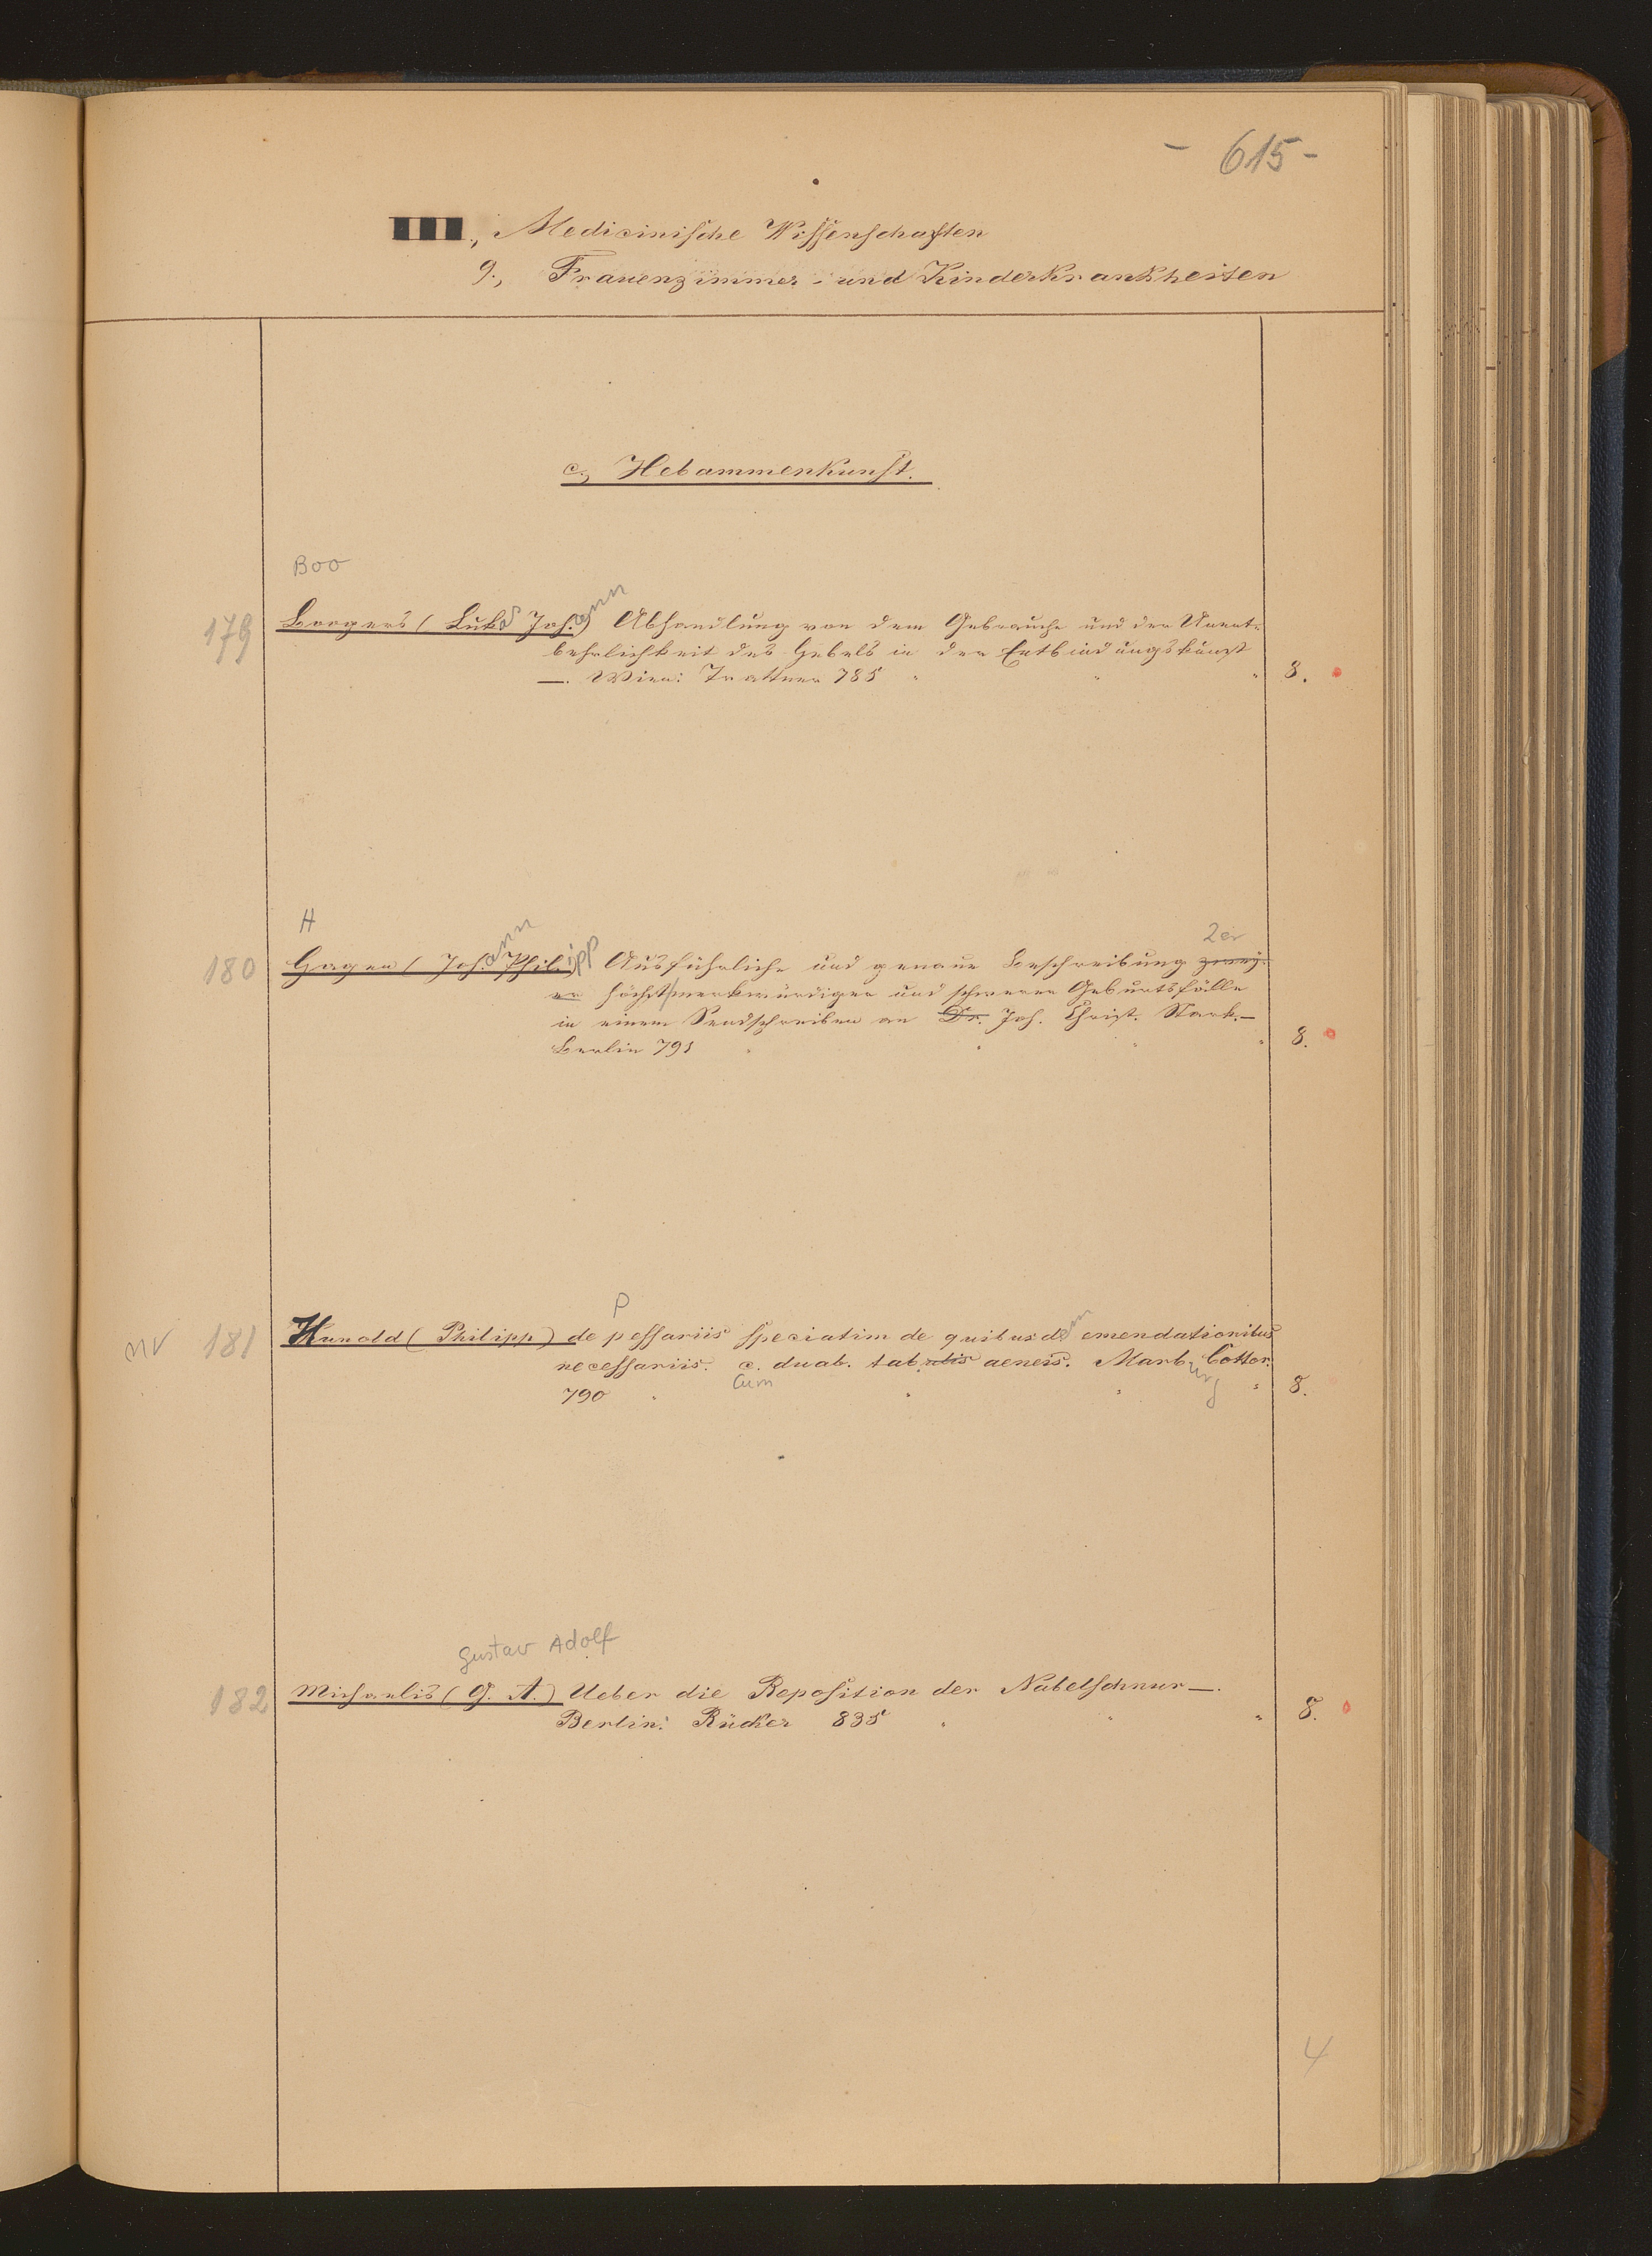 - 615 -
III., Medicinische Wissenschaften
9., Frauenzimmer- und Kinderkrankheiten
c., Hebammenkunst.
Boo
179 Boogers (Lukas Johann) Abhandlung von dem Gebrauche und der Unent-
behrlichkeit des Hebels in der Entbindungskunst
—. Wien: Trattner 785 " " " 8.
H
2er
180 Hagen (Johann Philipp) Ausführliche und genaue Beschreibung zwey-
er höchst merkwürdigen und schweren Geburtsfälle
in einem Sendschreiben an Dr. Joh. Christ. Stark.—
Berlin 791 " " " " 8.
P
nv 181 Hunold (Philipp) de pessariis speciatim de quibusdem emendationibus
necessariis. c. duab. tabulis aeneis. Marburg Cotter.
cum
790 " " " " 8.
Gustav Adolf
182 Michaelis (G. A.) Ueber die Reposition der Nabelschnur —.
Berlin: Rücker 835 " " " 8.
4